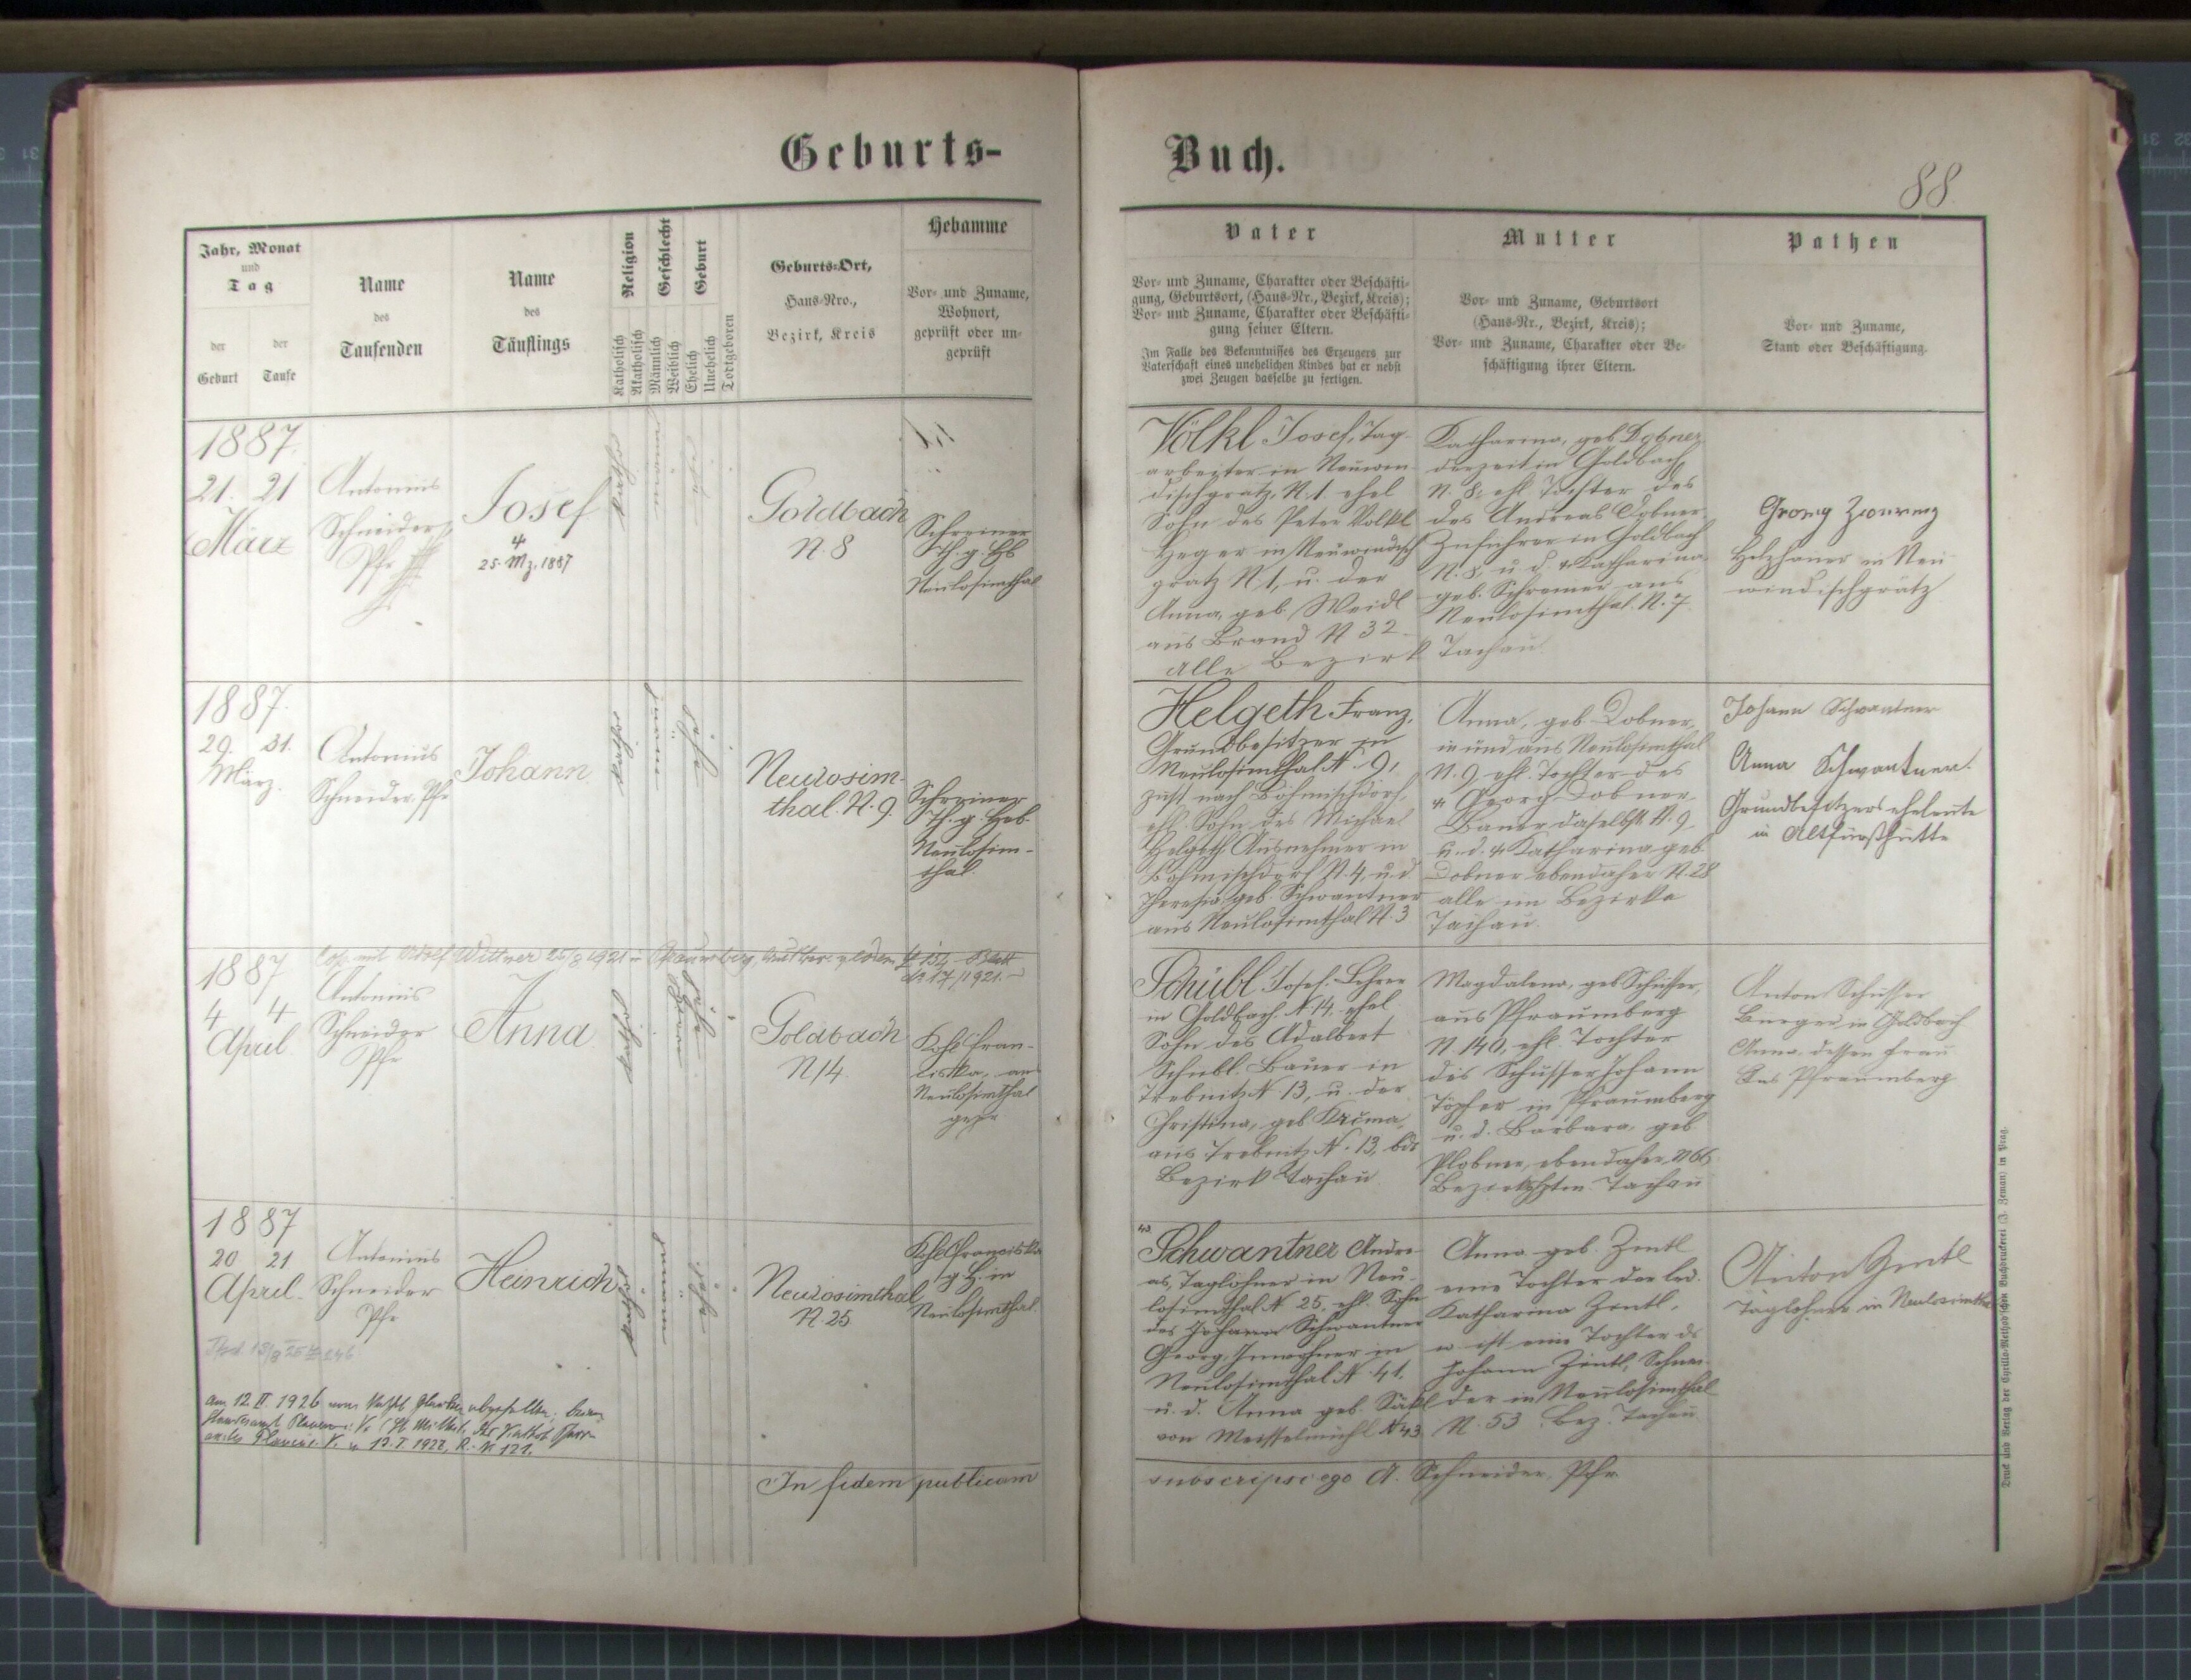 Geburts-
Buch.
88
Jahr, Monat
und
Tag
der
Geburt
der
Taufe
Name
des
Taufenden
Name
des
Täuflings
Religion
Katholisch
Akatholisch
Geschlecht
Männlich
Weiblich
Geburt
Ehelich
Unehelich
Todtgeboren
Geburts-Ort,
Haus-Nro.,
Bezirk, Kreis
Hebamme
Vor- und Zuname,
Wohnort,
geprüft oder un-
geprüft
Vater
Vor- und Zuname, Charakter oder Beschäfti-
gung, Geburtsort, (Haus-Nr., Bezirk, Kreis);
Vor- und Zuname, Charakter oder Beschäfti-
gung seiner Eltern.
Im Falle des Bekenntnisses des Erzeugers zur
Vaterschaft eines unehelichen Kindes hat er nebst
zwei Zeugen dasselbe zu fertigen.
Mutter
Vor- und Zuname, Geburtsort
(Haus-Nr., Bezirk, Kreis);
Vor- und Zuname, Charakter oder Be-
schäftigung ihrer Eltern.
Pathen
Vor- und Zuname,
Stand oder Beschäftigung.
1887.
21. 21
März
Antonius
Schneider
Pfr
Josef
25. Mz. 1887
Goldbach
N. 8
Schreiner
Th. g. Hb
Neulosimthal
Völkl Josef, Tag-
arbeiter in Neuwin-
dischgratz, N. 1. ehel
Sohn des Peter Volkl
Heger in Neuwindisch
gratz N 1, u. der
Anna, geb. Weidl
aus Brand N 32
alle Bezirk Tachau.
Katharina, geb. Dobner
derzeit in Goldbach
N. 8. ehl. Tochter des
des Andreas Dobner
in Goldbach
N. 8, u. d. Katharina
geb. Schreiner aus
Neulosimthal. N. 7.
Georg
Holzhauer in Neu
windischgrätz
1887.
29. 31.
März.
Antonius
Schneider. Pfr
Johann
Neulosim-
thal. N. 9.
Schreiner
Th. g. Heb.
Neulosim-
thal.
Helgeth Franz,
Grundbesitzer in
Neulosimthal N. 9,
zust. nach Böhmischdorf,
ehl. Sohn des Michael
Helgeth Ausnehmer in
Böhmischdorf N. 4, u. d.
Theresia geb. Schwantner
aus Neulosimthal N. 3
Anna, geb. Dobner,
in und aus Neulosimthal
N. 9, ehl. Tochter des
Georg Dobner
Bauer daselbst N. 9
u. d. Katharina geb.
Dobner ebendaher N. 28
alle im Bezirke
Tachau.
Johann Schwantner
Anna Schwantner.
Grundbesitzerseheleute
in Altfürsthütte
Cop. mit Adolf Wittner 25/8 1921 in Pfraumberg,
N. 17/1921.
1887
4 4
April.
Antonius
Schneider
Pfr
Anna
Goldbach
N 14.
Kohl Fran-
ziska, aus
Neulosimthal
gepr
Schübl Josef. Lehrer
in Goldbach. N. 14. ehel
Sohn des Adalbert
Schübl. Bauer in
Trebnitz N 13, u. der
Christina, geb. Krčma,
aus Trebnitz N. 13,
Bezirk Tachau.
Magdalena, geb Schusser,
aus Pfraumberg
N. 140, ehl. Tochter
des Schusser Johann
Töpfer in Pfraumberg
u. d. Barbara, geb.
ebendaher, N 66
Tachau
Anton Schusser
Bürger in Goldbach
Anna, dessen Frau
Aus Pfraumberg
1887
20 21
April.
Antonius
Schneider
Pfr
Heinrich
Neulosimthal
N. 25
Kohl Franziska
g H. in
Neulosimthal.
Schwantner Andre-
as, Taglöhner in Neu-
losimthal N 25, ehl. Sohn
des Johann Schwantner
Georg, Inwohner in
Neulosimthal N. 41.
u. d. Anna geb. Säckl
von Meisselmühl N 43
Anna geb. Zintl
eine Tochter der led.
Katharina Zintl,
w ist eine Tochter ds
Johann Zintl, Schnei-
der in Neulosimthal
N. 53 Bez. Tachau
Anton Zintl
Taglöhner in Neulosimthal
am 12. II. 1926 vom kath. Glauben abgefallen,
Standesamt Plauen i. V.
Plauen i. V. v. 13. I. 1928, R. N 121.
In fidem publicam
subscripsi ego A. Schneider, Pfr.
Druck und Verlag der Cyrillo-Method'schen Buchdruckerei (J. Zeman) in Prag.